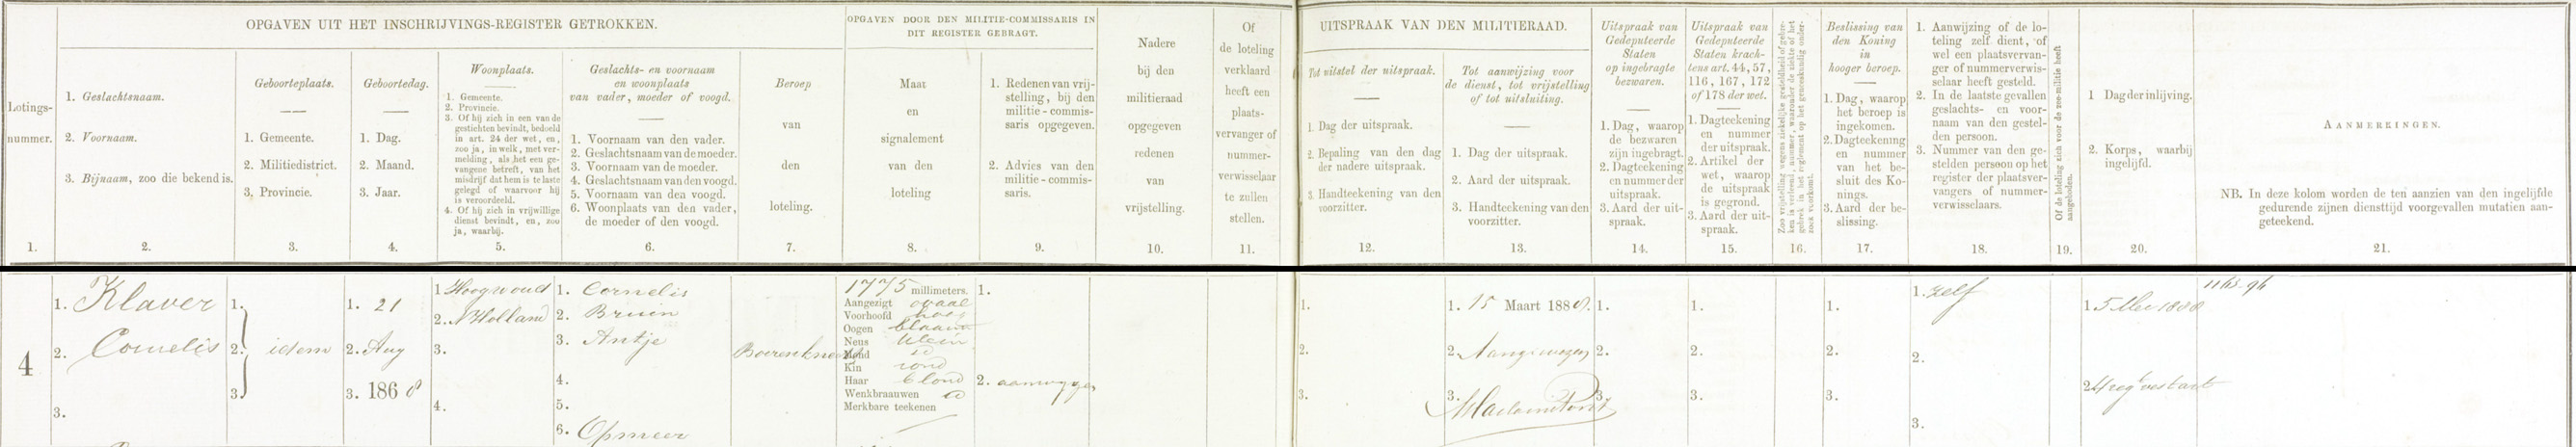 OPGAVEN UIT HET INSCHRIJVINGS-REGISTER GETROKKEN.
OPGAVEN DOOR DEN MILITIE-COMMISSARIS IN
DIT REGISTER GEBRAGT.
Lotings-
nummer.
1.
1. Geslachtsnaam.
2. Voornaam.
3. Bijnaam, zoo die bekend is.
2.
Geboorteplaats.
1. Gemeente.
2. Militiedistrict.
3. Provincie.
3.
Geboortedag.
1. Dag.
2. Maand.
3. Jaar.
4.
Woonplaats.
1. Gemeente.
2. Provincie.
3. Of hij zich in een van de
gestichten bevindt, bedoeld
in art. 24 der wet, en,
zoo ja, in welk, met ver-
melding, als het een ge-
vangene betreft, van het
misdrijf dat hem is te laste
gelegd of waarvoor hij
is veroordeeld.
4. Of hij zich in vrijwillige
dienst bevindt, en, zoo
ja, waarbij.
5.
Geslachts- en voornaam
en woonplaats
van vader, moeder of voogd.
1. Voornaam van den vader.
2. Geslachtsnaam van de moeder.
3. Voornaam van de moeder.
4. Geslachtsnaam van den voogd.
5. Voornaam van den voogd.
6. Woonplaats van den vader,
de moeder of den voogd.
6.
Beroep
van
den
loteling.
7.
Maat
en
signalement
van den
loteling
8.
1. Redenen van vrij-
stelling, bij den
militie-commis-
saris opgegeven.
2. Advies van den
militie-commis-
saris.
9.
Nadere
bij den
militieraad
opgegeven
redenen
van
vrijstelling.
10.
Of
de loteling
verklaard
heeft een
plaats-
vervanger of
nummer-
verwisselaar
te zullen
stellen.
11.
UITSPRAAK VAN DEN MILITIERAAD.
Tot uitstel der uitspraak.
1. Dag der uitspraak.
2. Bepaling van den dag
der nadere uitspraak.
3. Handteekening van den
voorzitter.
12.
Tot aanwijzing voor
de dienst, tot vrijstelling
of tot uitsluiting.
1. Dag der uitspraak.
2. Aard der uitspraak.
3. Handteekening van den
voorzitter.
13.
Uitspraak van
Gedeputeerde
Staten
op ingebragte
bezwaren.
1. Dag, waarop
de bezwaren
zijn ingebragt.
2. Dagteekening
en nummer der
uitspraak.
3. Aard der uit-
spraak.
14.
Uitspraak van
Gedeputeerde
Staten krach-
tens art. 44, 57,
116, 167, 172
of 178 der wet.
1. Dagteekening
en nummer
der uitspraak.
2. Artikel der
wet, waarop
de uitspraak
is gegrond.
3. Aard der uit-
spraak.
15.
16.
Beslissing van
den Koning
in
hooger beroep.
1. Dag, waarop
het beroep is
ingekomen.
2. Dagteekening
en nummer
van het be-
sluit des Ko-
nings.
3. Aard der be-
slissing.
17.
1. Aanwijzing of de lo-
teling zelf dient, of
wel een plaatsvervan-
ger of nummerverwis-
selaar heeft gesteld.
2. In de laatste gevallen
geslachts- en voor-
naam van den gestel-
den persoon.
3. Nummer van den ge-
stelden persoon op het
register der plaatsver-
vangers of nummer-
verwisselaars.
18.
Of de loteling zich voor de zee-militie heeft
aangeboden.
19.
1 Dag der inlijving.
2. Korps, waarbij
ingelijfd.
20.
AANMERKINGEN.
NB. In deze kolom worden de ten aanzien van den ingelijfde
gedurende zijnen diensttijd voorgevallen mutatien aan-
geteekend.
21.
4
1. Klaver
2. Cornelis
3.
1.
2. idem
3.
1. 21
2. Aug
3. 1868
1 Hoogwoud
2. N Holland
3.
4.
1. Cornelis
2. Bruin
3. Antje
4.
5.
6. Opmeer
Boerenknecht
1775 millimeters.
Aangezigt ovaal
Voorhoofd hoog
Oogen blauw
Neus klein
Mond id
Kin rond
Haar blond
Wenkbraauwen id
Merkbare teekenen
1.
2. aanwyzen
1.
2.
3.
1. 15 Maart 1888.
2. Aangewezen
3.
1.
2.
3.
1.
2.
3.
1.
2.
3.
1. Zelf
2.
3.
1. 5 Mei 1888
2. 4 reg vest art